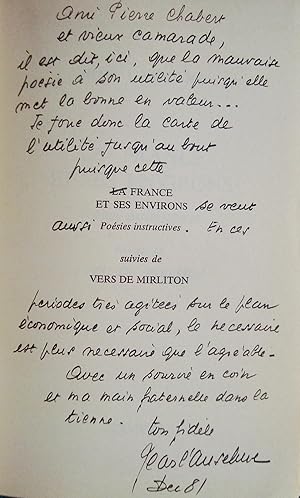 Ami Pierre Chabert
et vieux camarade,
il est dit, ici, que la mauvaise
poésie à son utilité puisqu'elle
met la bonne en valeur...
Je joue donc la carte de
l'utilité jusqu'au bout
puisque cette
LA FRANCE
ET SES ENVIRONS se veut
aussi Poésies instructives. En ces
suivies de
VERS DE MIRLITON
périodes très agitées sur le plan
économique et social, le nécessaire
est plus nécessaire que l'agréable.
Avec un sourire en coin
et ma main fraternelle dans la
tienne. ton fidèle
Jean l'Anselme
Dec 81